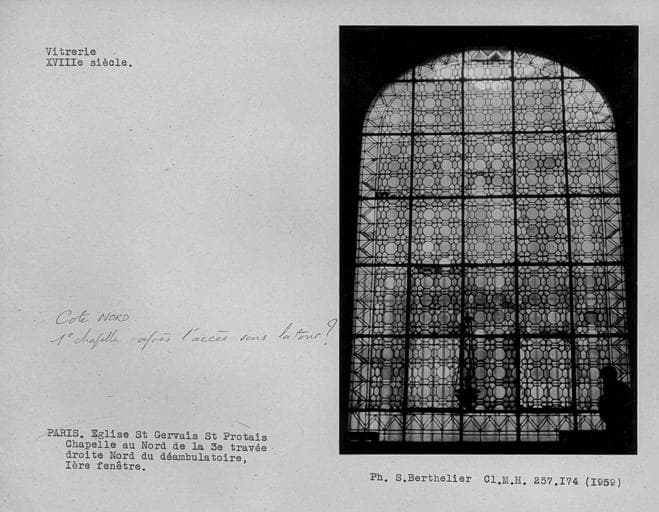 Vitrerie
XVIIIe siècle.
Cote NORD
1e chapelle après l'accès sous la tour ?
PARIS. Eglise St Gervais St Protais
Chapelle au Nord de la 3e travée
droite Nord du déambulatoire,
Ière fenêtre.
Ph. S.Berthelier Cl.M.H. 257.I74 (I959)